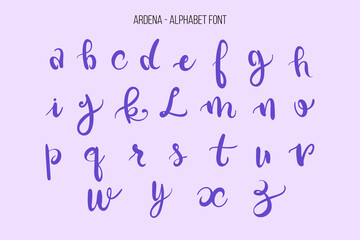 ARDENA - ALPHABET FONT
a b c d e f g h
i j k L m n o
p q r s t u v
w y x z